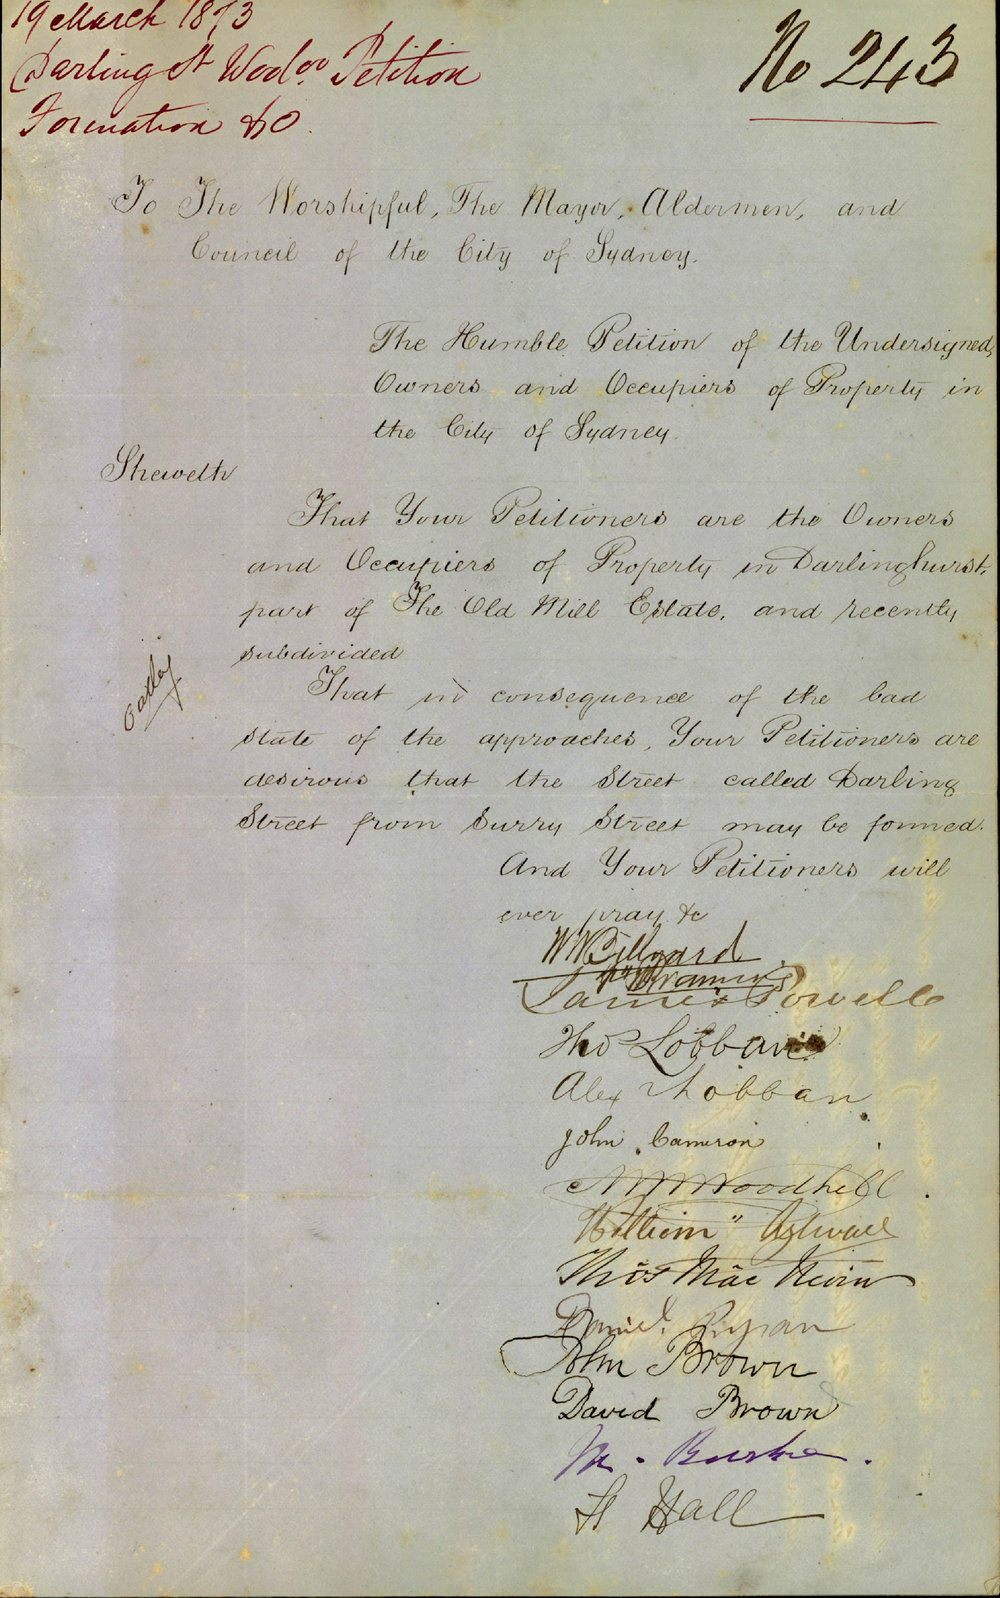 19 March 1873
Darling St Wooloo Petition
Formation &c
No 243
To The Worshipful, The Mayor, Aldermen, and
Council of the City of Sydney.
The Humble Petition of the Undersigned,
Owners and Occupiers of Property in
the City of Sydney.
Sheweth
That Your Petitioners are the Owners
and Occupiers of Property in Darlinghurst,
part of The Old Mill Estate, and recently
subdivided
Oatley
That in consequence of the bad
state of the approaches, Your Petitioners are
desirous that the Street called Darling
Street from Surry Street may be formed.
And Your Petitioners will
ever pray &c
W W Billyard
James Powell
Thos Lobban
Alex Lobban
John Cameron
Woodhill
William
Thos Mac Nevin
Daniel Ryan
John Brown
David Brown
M. Burke.
H Hall